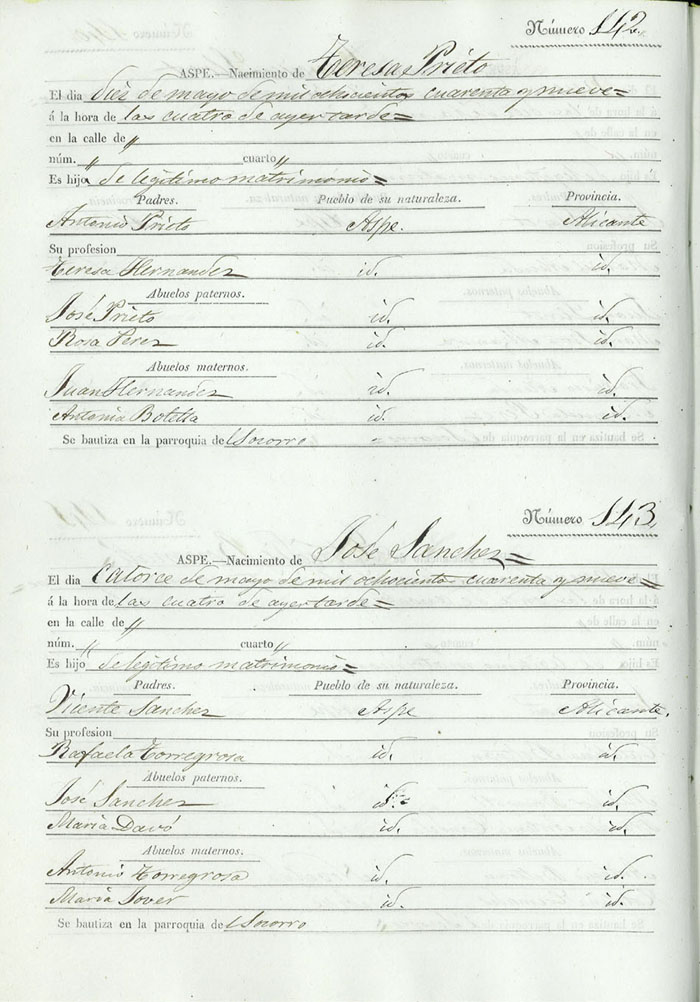 Número 142.
ASPE.—Nacimiento de Teresa Prieto
El dia dies de mayo de mil ochocientos cuarenta y nueve=
á la hora de las cuatro de ayer tarde=
en la calle de „
núm. „ cuarto „
Es hijo de legitimo matrimonio=
Padres. Pueblo de su naturaleza. Provincia.
Antonio Prieto Aspe. Alicante
Su profesion
Teresa Hernandez id. id.
Abuelos paternos.
José Prieto id. id.
Rosa Perez id. id.
Abuelos maternos.
Juan Hernandez id. id.
Antonia Botella id. id.
Se bautiza en la parroquia del Socorro
Número 143.
ASPE.—Nacimiento de José Sanchez=
El dia catorce de mayo de mil ochocientos cuarenta y nueve=
á la hora de las cuatro de ayer tarde=
en la calle de „
núm. „ cuarto „
Es hijo de legitimo matrimonio=
Padres. Pueblo de su naturaleza. Provincia.
Vicente Sanchez Aspe Alicante.
Su profesion
Rafaela Torregrosa id. id.
Abuelos paternos.
José Sanchez id. id.
Maria Davó id. id.
Abuelos maternos.
Antonio Torregrosa id. id.
Maria Jover id. id.
Se bautiza en la parroquia del Socorro